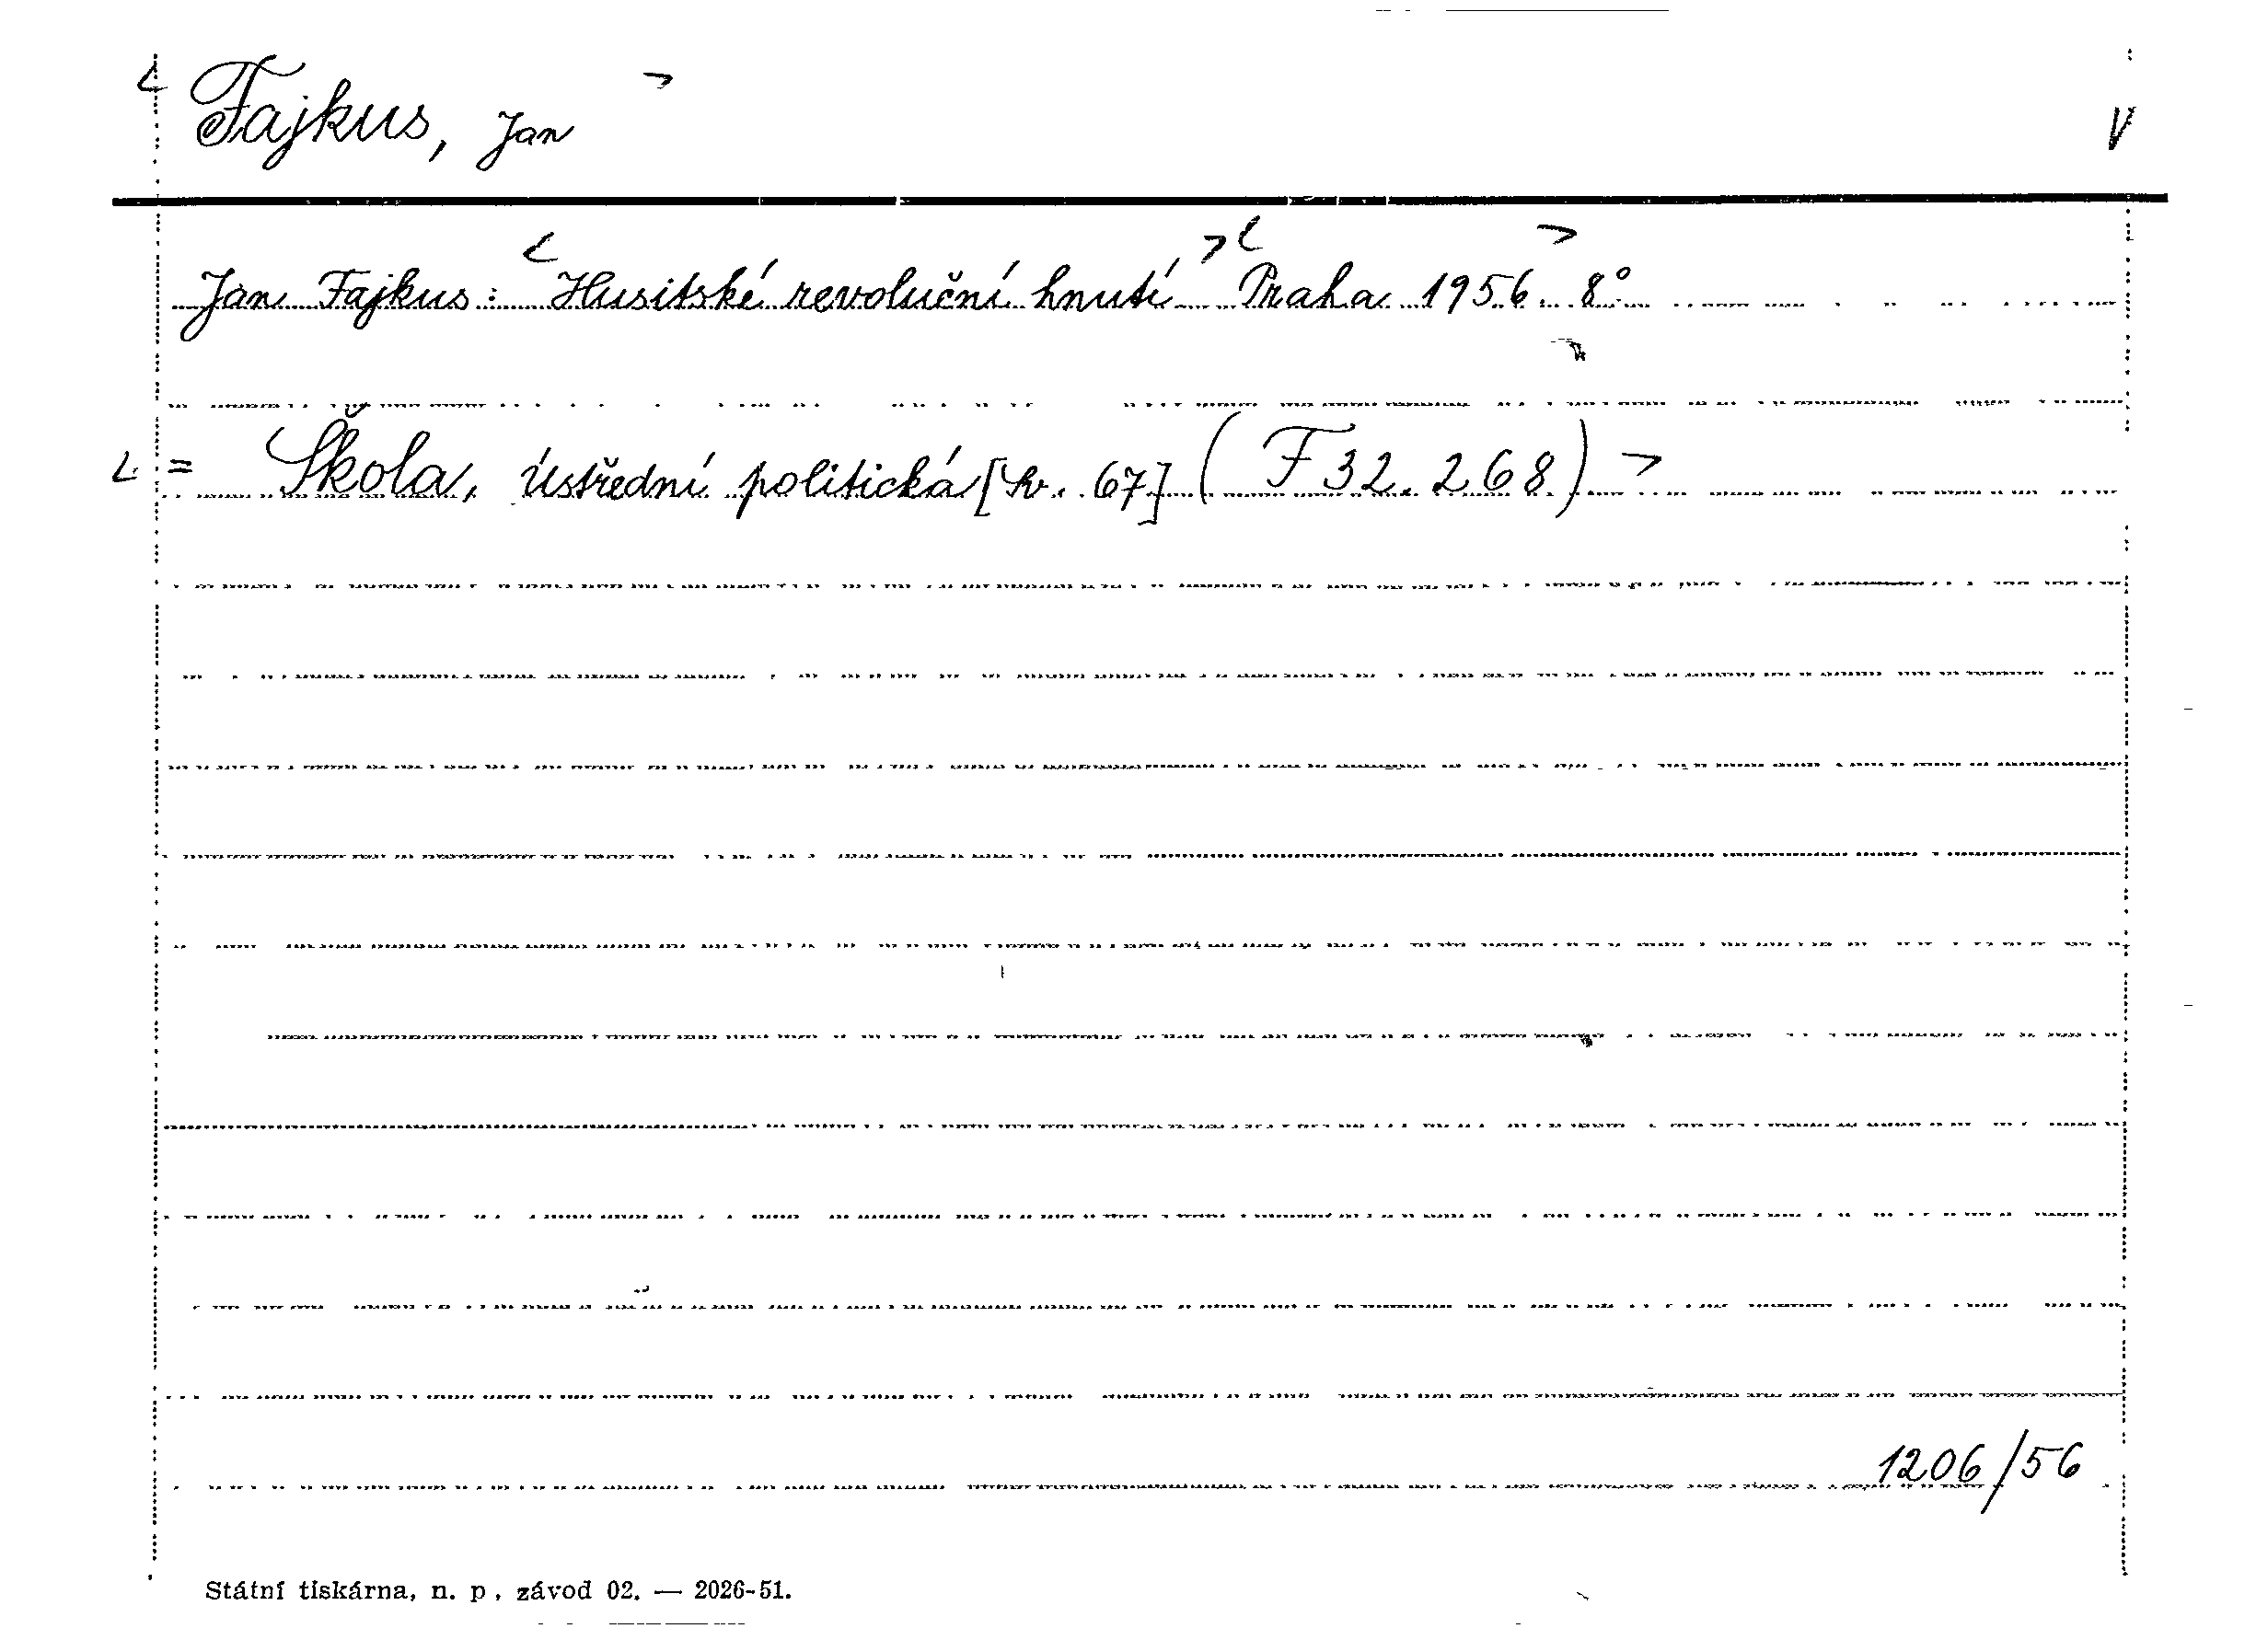 < Fajkus, Jan > V
Jan Fajkus: < Husitské revoluční hnutí > < Praha 1956 > 8°
< = Škola, ústřední politická [sv. 67] (F 32.268) >
1206/56
Státní tiskárna, n. p., závod 02. — 2026-51.